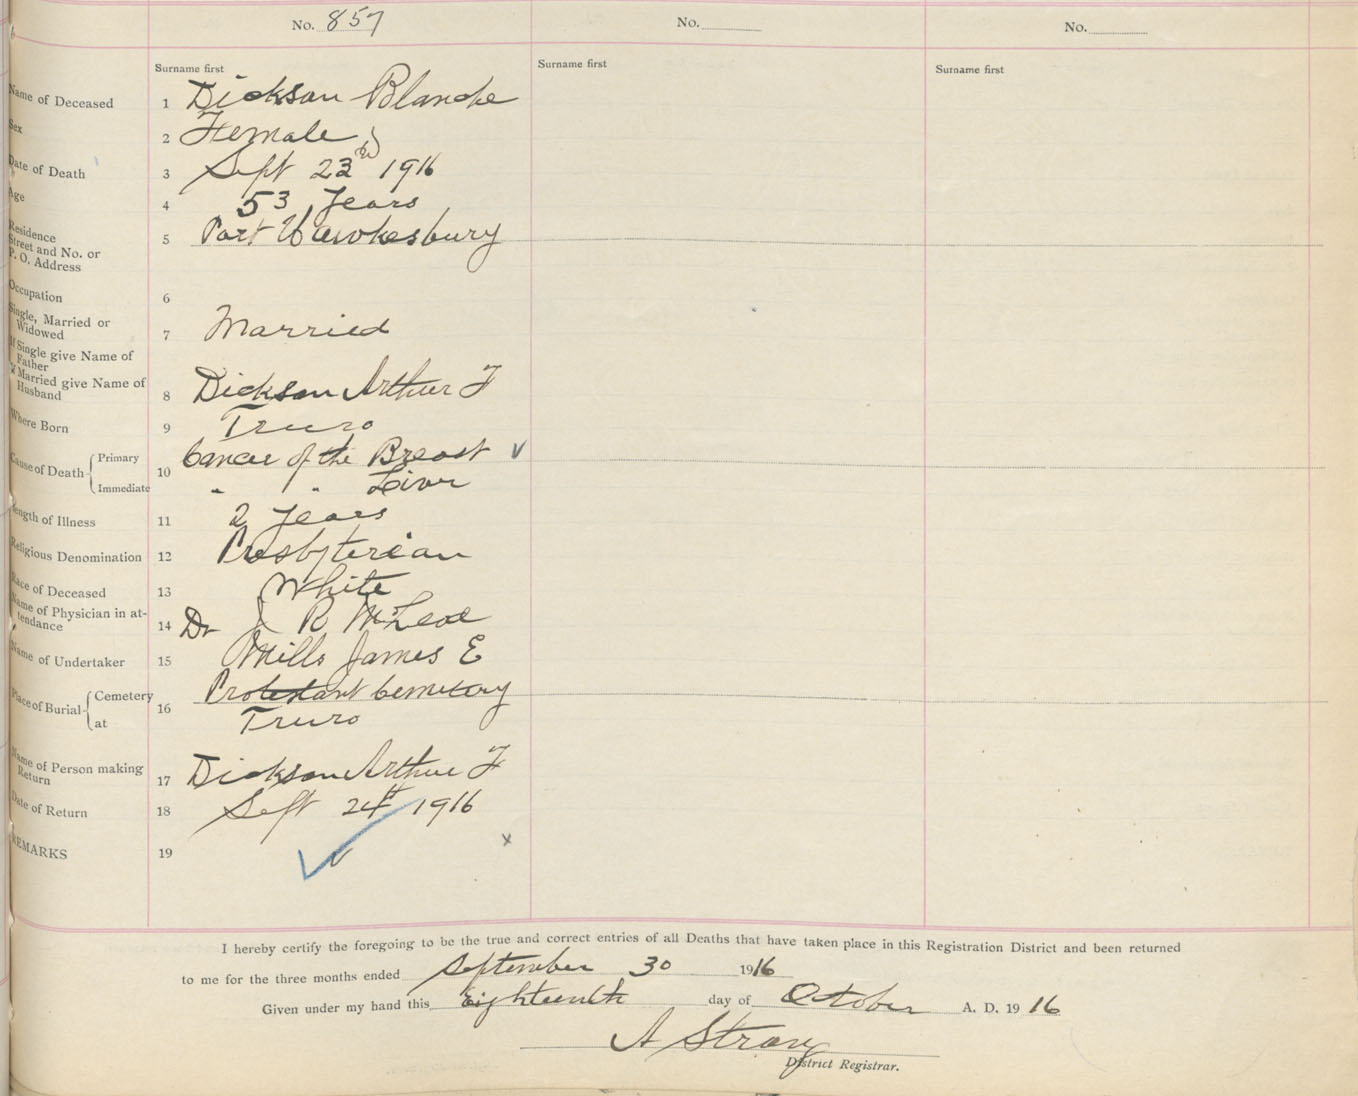 No. 857
No.
No.
Surname first
Surname first
Surname first
Name of Deceased 1 Dickson Blanche
Sex 2 Female
Date of Death 3 Sept 23rd 1916
Age 4 53 Years
Residence
Street and No. or 5 Port Hawkesbury
P. O. Address
Occupation 6
Single, Married or
Widowed 7 Married
If Single give Name of
Father
If Married give Name of
Husband 8 Dickson Arthur F
Where Born 9 Truro
Cause of Death Primary 10 Cancer of the Breast
Immediate " " Liver
Length of Illness 11 2 Years
Religious Denomination 12 Presbyterian
Race of Deceased 13 White
Name of Physician in at-
tendance 14 Dr J R McLeod
Name of Undertaker 15 Mills James E
Place of Burial Cemetery 16 Protestant Cemetery
at Truro
Name of Person making
Return 17 Dickson Arthur F
Date of Return 18 Sept 24th 1916
REMARKS 19
I hereby certify the foregoing to be the true and correct entries of all Deaths that have taken place in this Registration District and been returned
to me for the three months ended September 30 1916
Given under my hand this Eighteenth day of October A. D. 1916
A
District Registrar.